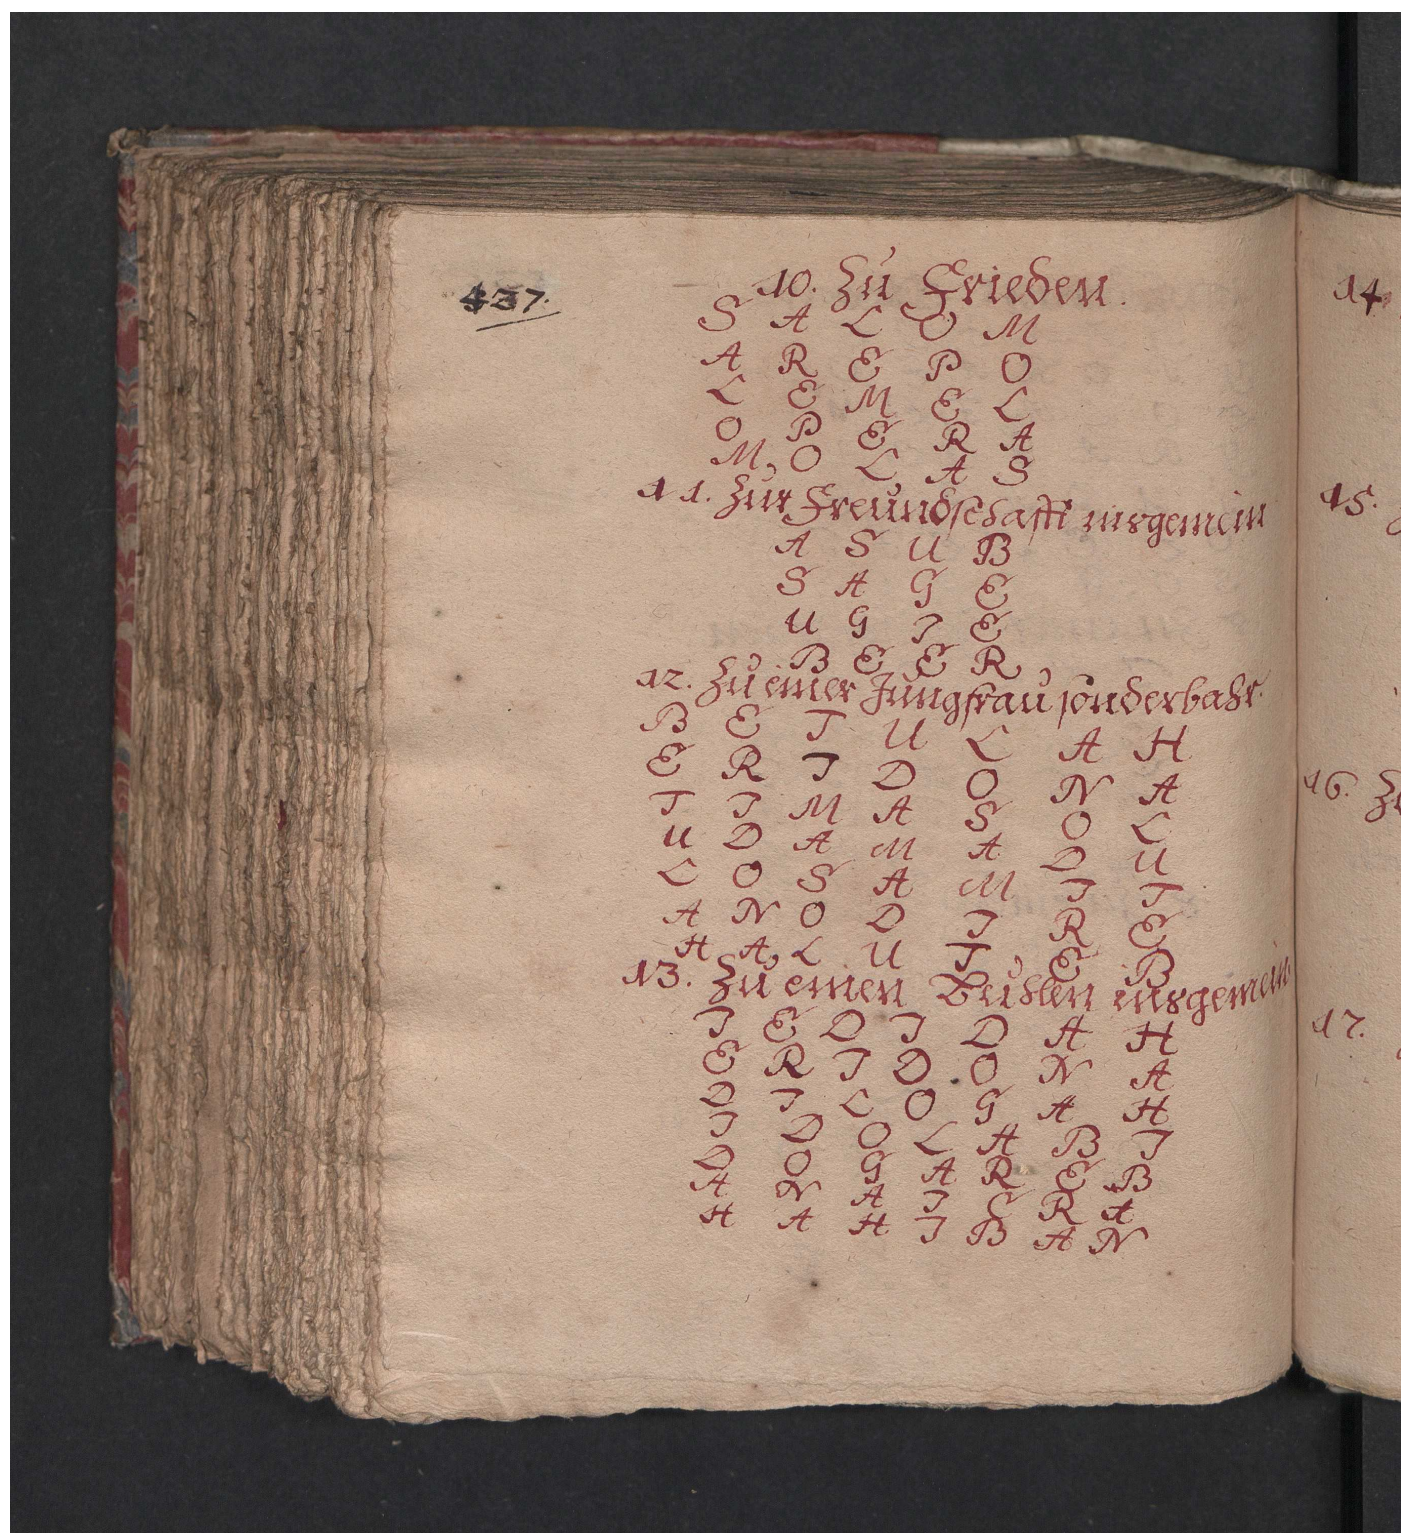 437.
10. Zu Frieden.
S A L O M
A R E P O
L E M E L
O P E R A
M O L A S
11. Zur Freundschafft insgemein
A S U B
S A G E
U G I E
B E E R
12. Zu einer Jungfrau sonderbahr.
B E T U L A H
E R I D O N A
T I M A S O L
U D A M A D U
L O S A M I T
A N O D I R E
H A L U T E B
13. Zu einen Buhlen insgemein
I E D I D A H
E R I D O N A
D I L O G A H
I D O L A B I
D O G A R E B
A N A I E R A
H A H I B A N
14.
15.
16. Zu
17.